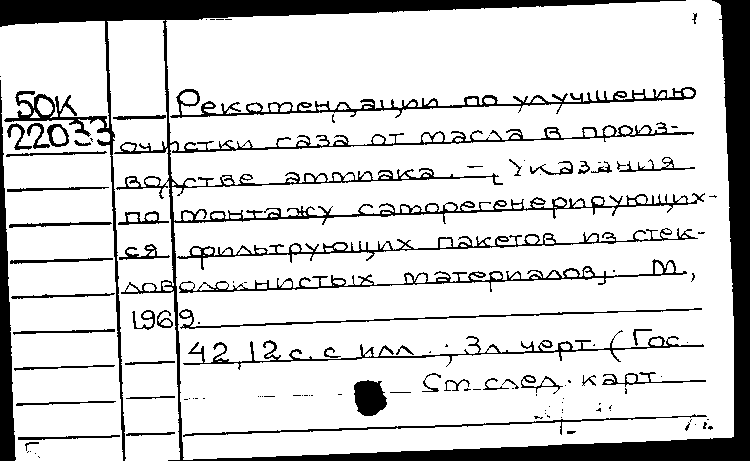 50К
22033
Рекомендации по улучшению
очистки газа от масла в произ-
водстве аммиака. –, Указания
по монтажу саморегенерирующих-
ся фильтрующих пакетов из стек-
ловолокнистых материалов,. М.,
1969.
42, 12 с. с илл.; 3 л. черт. (Гос.
См след. карт.